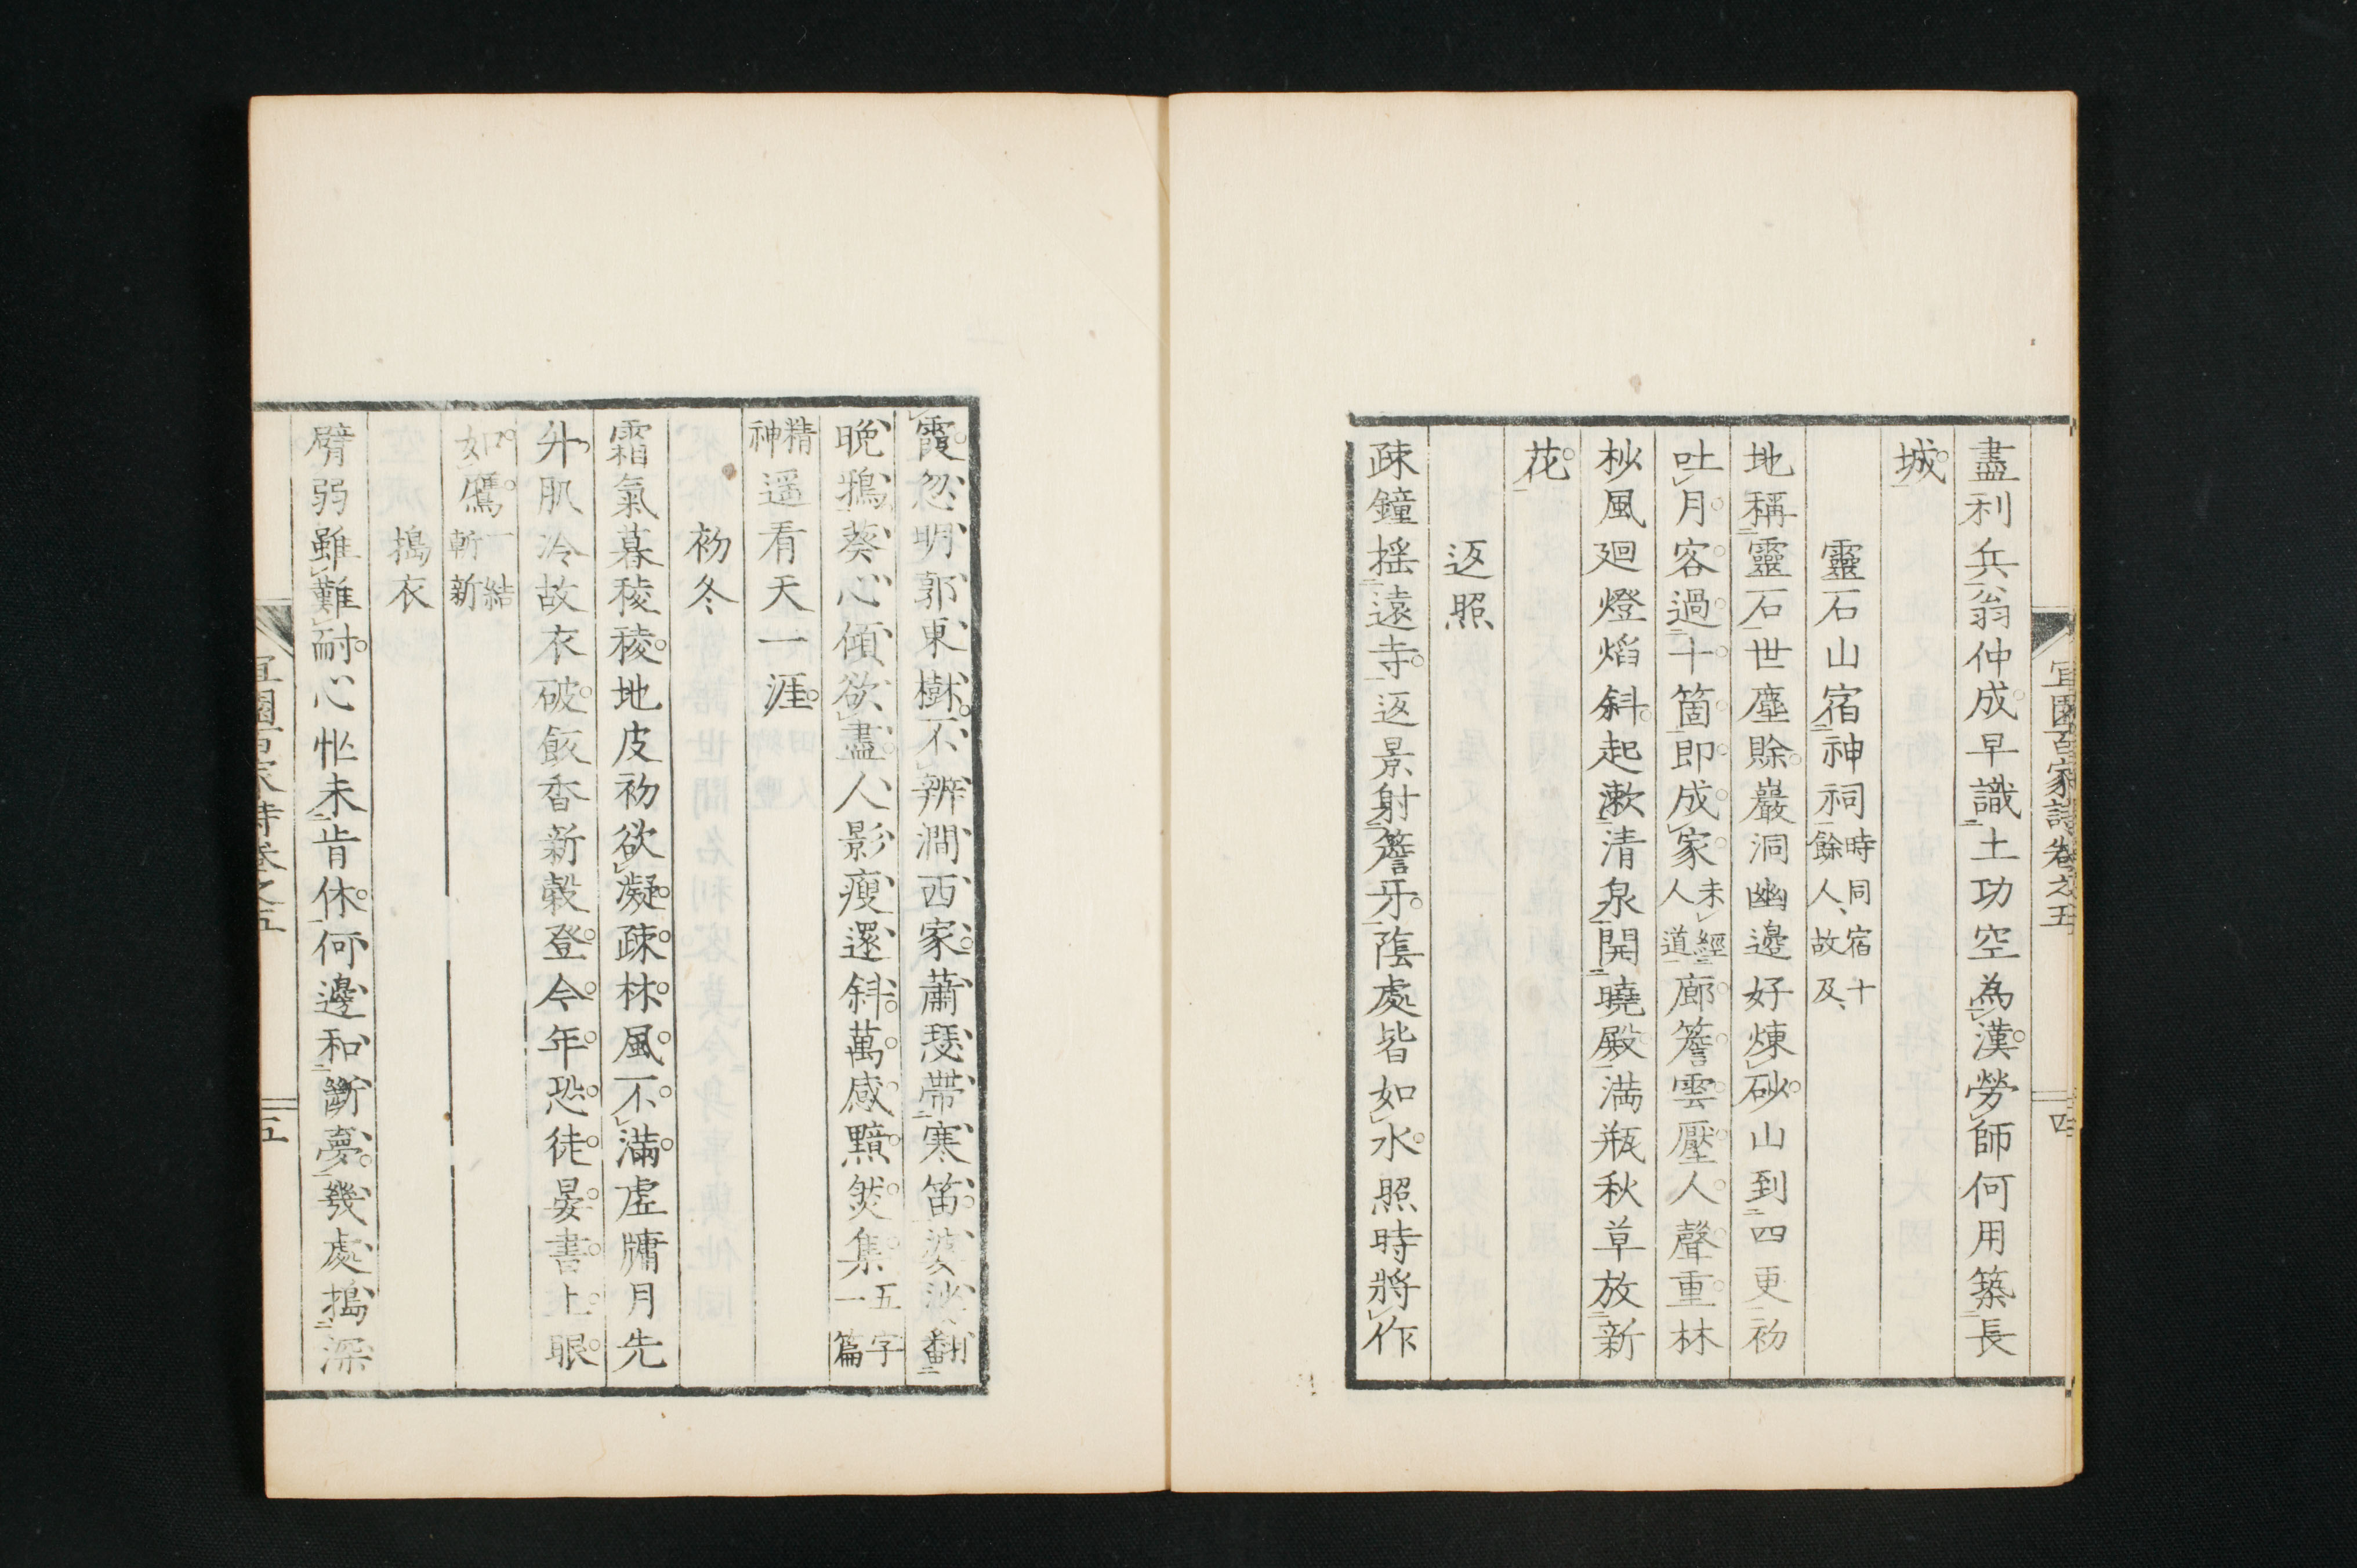 宜園百家詩卷之五
四
盡利兵翁仲成早識土功空為漢勞師何用築長
城
靈石山宿神祠時同宿十餘人故及
地稱靈石世塵賖巖洞幽邊好煉砂山到四更初
吐月客過十箇即成家未經人道廊簷雲壓人聲重林
杪風廻燈焰斜起漱清泉開曉殿満瓶秋草放新
花
返照
疎鐘揺遠寺返景射簷牙蔭處皆如水照時將作
霞忽明郭東樹不辨澗西家蕭瑟帶寒笛婆娑翻
晩鴉葵心傾欲盡人影瘦還斜萬感黯然集五字一篇
精神遥看天一涯
初冬
霜氣暮稜稜地皮初欲凝疎林風不満虚牗月先
升肌冷故衣破飯香新穀登今年恐徒晏書上眼
如鷹一結斬新
搗衣
臂弱雖難耐心忙未肯休何邊和斷夢幾處搗深
宜園百家詩卷之五
五